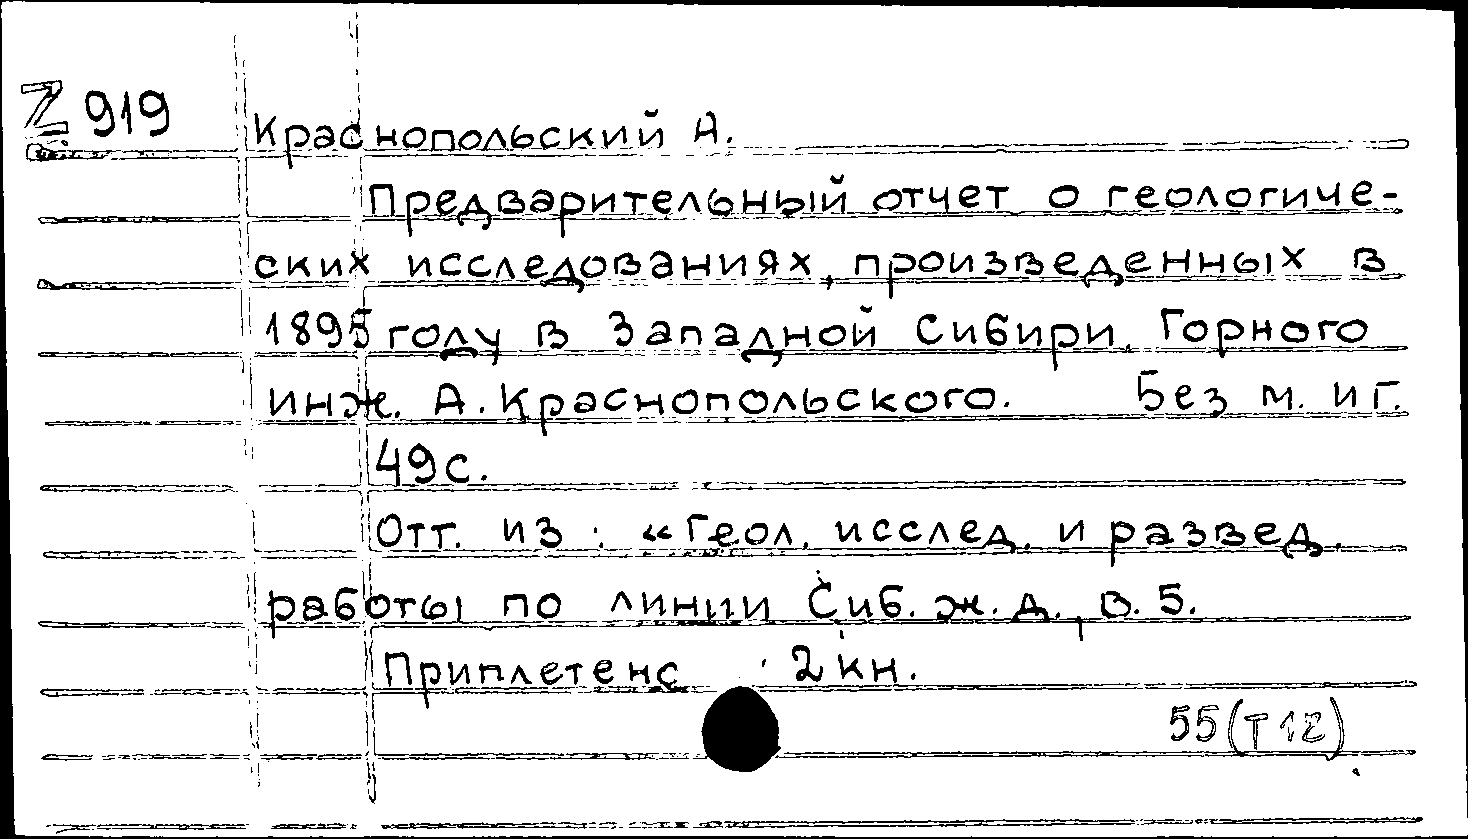 Z 919
Краснопольский А.
Предварительный отчет о геологиче-
ских исследованиях, произведенных в
1895 году в Западной Сибири. Горного
инж. А. Краснопольского. Без м. и г.
49 с.
Отт. из: «Геол. исслед. и развед.
работы по линии Сиб. ж. д., в. 5.
Приплетено 2 кн.
55(Т12)